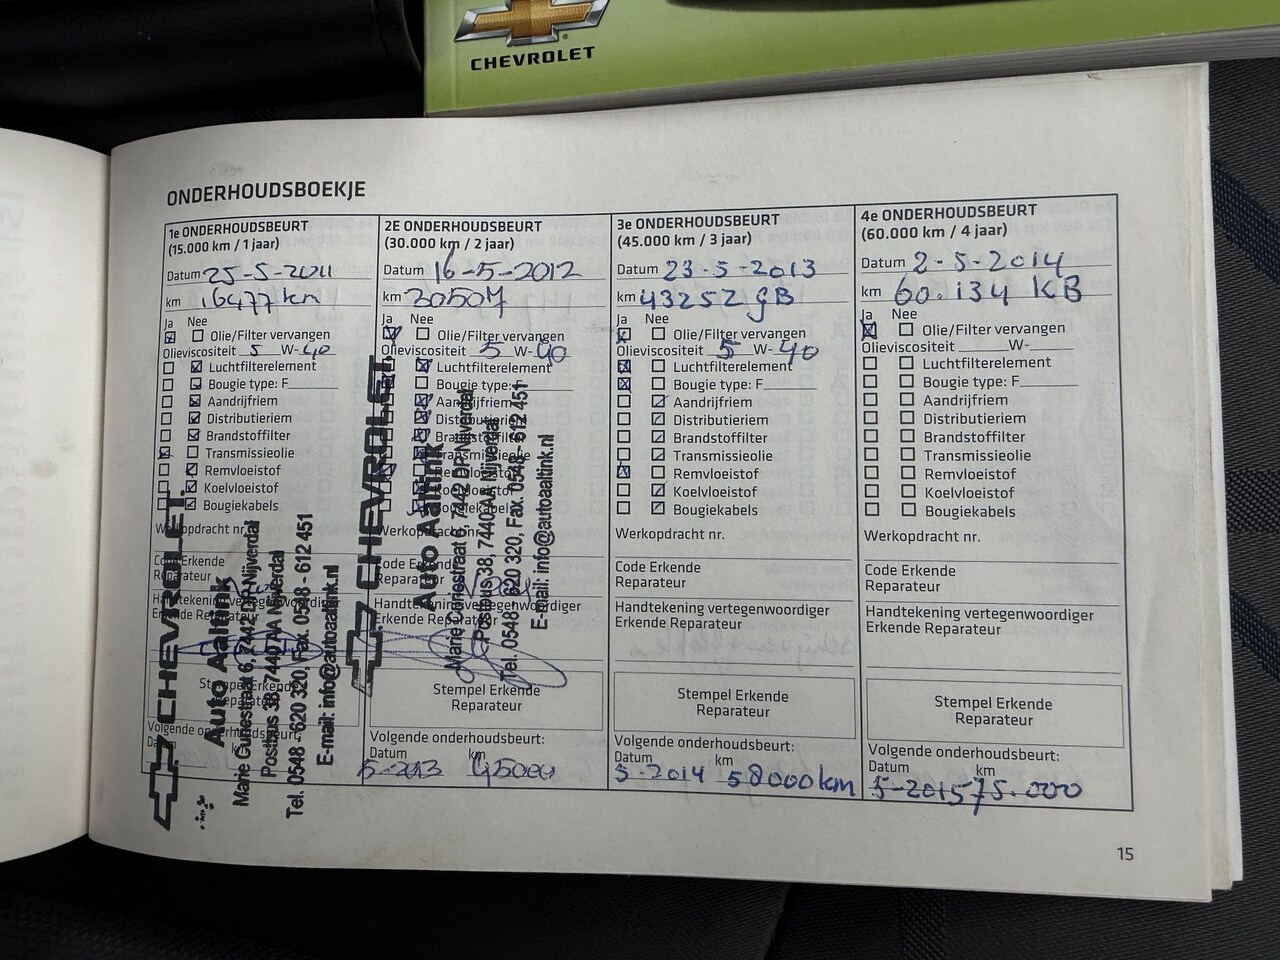 CHEVROLET
ONDERHOUDSBOEKJE
1e ONDERHOUDSBEURT
(15.000 km / 1 jaar)
Datum 25-5-2011
km 16477 km
Ja Nee
Olie/Filter vervangen
Olieviscositeit 5 W-40
Luchtfilterelement
Bougie type: F
Aandrijfriem
Distributieriem
Brandstoffilter
Transmissieolie
Remvloeistof
Koelvloeistof
Bougiekabels
Werkopdracht nr.
Code Erkende
Reparateur
Handtekening vertegenwoordiger
Erkende Reparateur
Stempel Erkende
Reparateur
Volgende onderhoudsbeurt:
CHEVROLET
Auto Aaltink
Marie Curiestraat 6, 7442 DP Nijverdal
Postbus 38, 7440 AA Nijverdal
Tel. 0548 - 620 320, Fax. 0548 - 612 451
E-mail: info@autoaaltink.nl
2E ONDERHOUDSBEURT
(30.000 km / 2 jaar)
Datum 16-5-2012
km 30507
Ja Nee
Olie/Filter vervangen
Olieviscositeit 5 W-40
Luchtfilterelement
Bougie type: F
Aandrijfriem
Distributieriem
Brandstoffilter
Transmissieolie
Remvloeistof
Koelvloeistof
Bougiekabels
Werkopdracht nr.
Code Erkende
Reparateur
Handtekening vertegenwoordiger
Erkende Reparateur
Stempel Erkende
Reparateur
Volgende onderhoudsbeurt:
Datum km
5-2013 45000
CHEVROLET
Auto Aaltink
Marie Curiestraat 6, 7442 DP Nijverdal
Postbus 38, 7440 AA Nijverdal
Tel. 0548 - 620 320, Fax. 0548 - 612 451
E-mail: info@autoaaltink.nl
3e ONDERHOUDSBEURT
(45.000 km / 3 jaar)
Datum 23-5-2013
km 43252 GB
Ja Nee
Olie/Filter vervangen
Olieviscositeit 5 W-40
Luchtfilterelement
Bougie type: F
Aandrijfriem
Distributieriem
Brandstoffilter
Transmissieolie
Remvloeistof
Koelvloeistof
Bougiekabels
Werkopdracht nr.
Code Erkende
Reparateur
Handtekening vertegenwoordiger
Erkende Reparateur
Stempel Erkende
Reparateur
Volgende onderhoudsbeurt:
Datum km
5-2014 58000km
4e ONDERHOUDSBEURT
(60.000 km / 4 jaar)
Datum 2-5-2014
km 60.134 KB
Ja Nee
Olie/Filter vervangen
Olieviscositeit W-
Luchtfilterelement
Bougie type: F
Aandrijfriem
Distributieriem
Brandstoffilter
Transmissieolie
Remvloeistof
Koelvloeistof
Bougiekabels
Werkopdracht nr.
Code Erkende
Reparateur
Handtekening vertegenwoordiger
Erkende Reparateur
Stempel Erkende
Reparateur
Volgende onderhoudsbeurt:
Datum km
5-2015 75.000
15